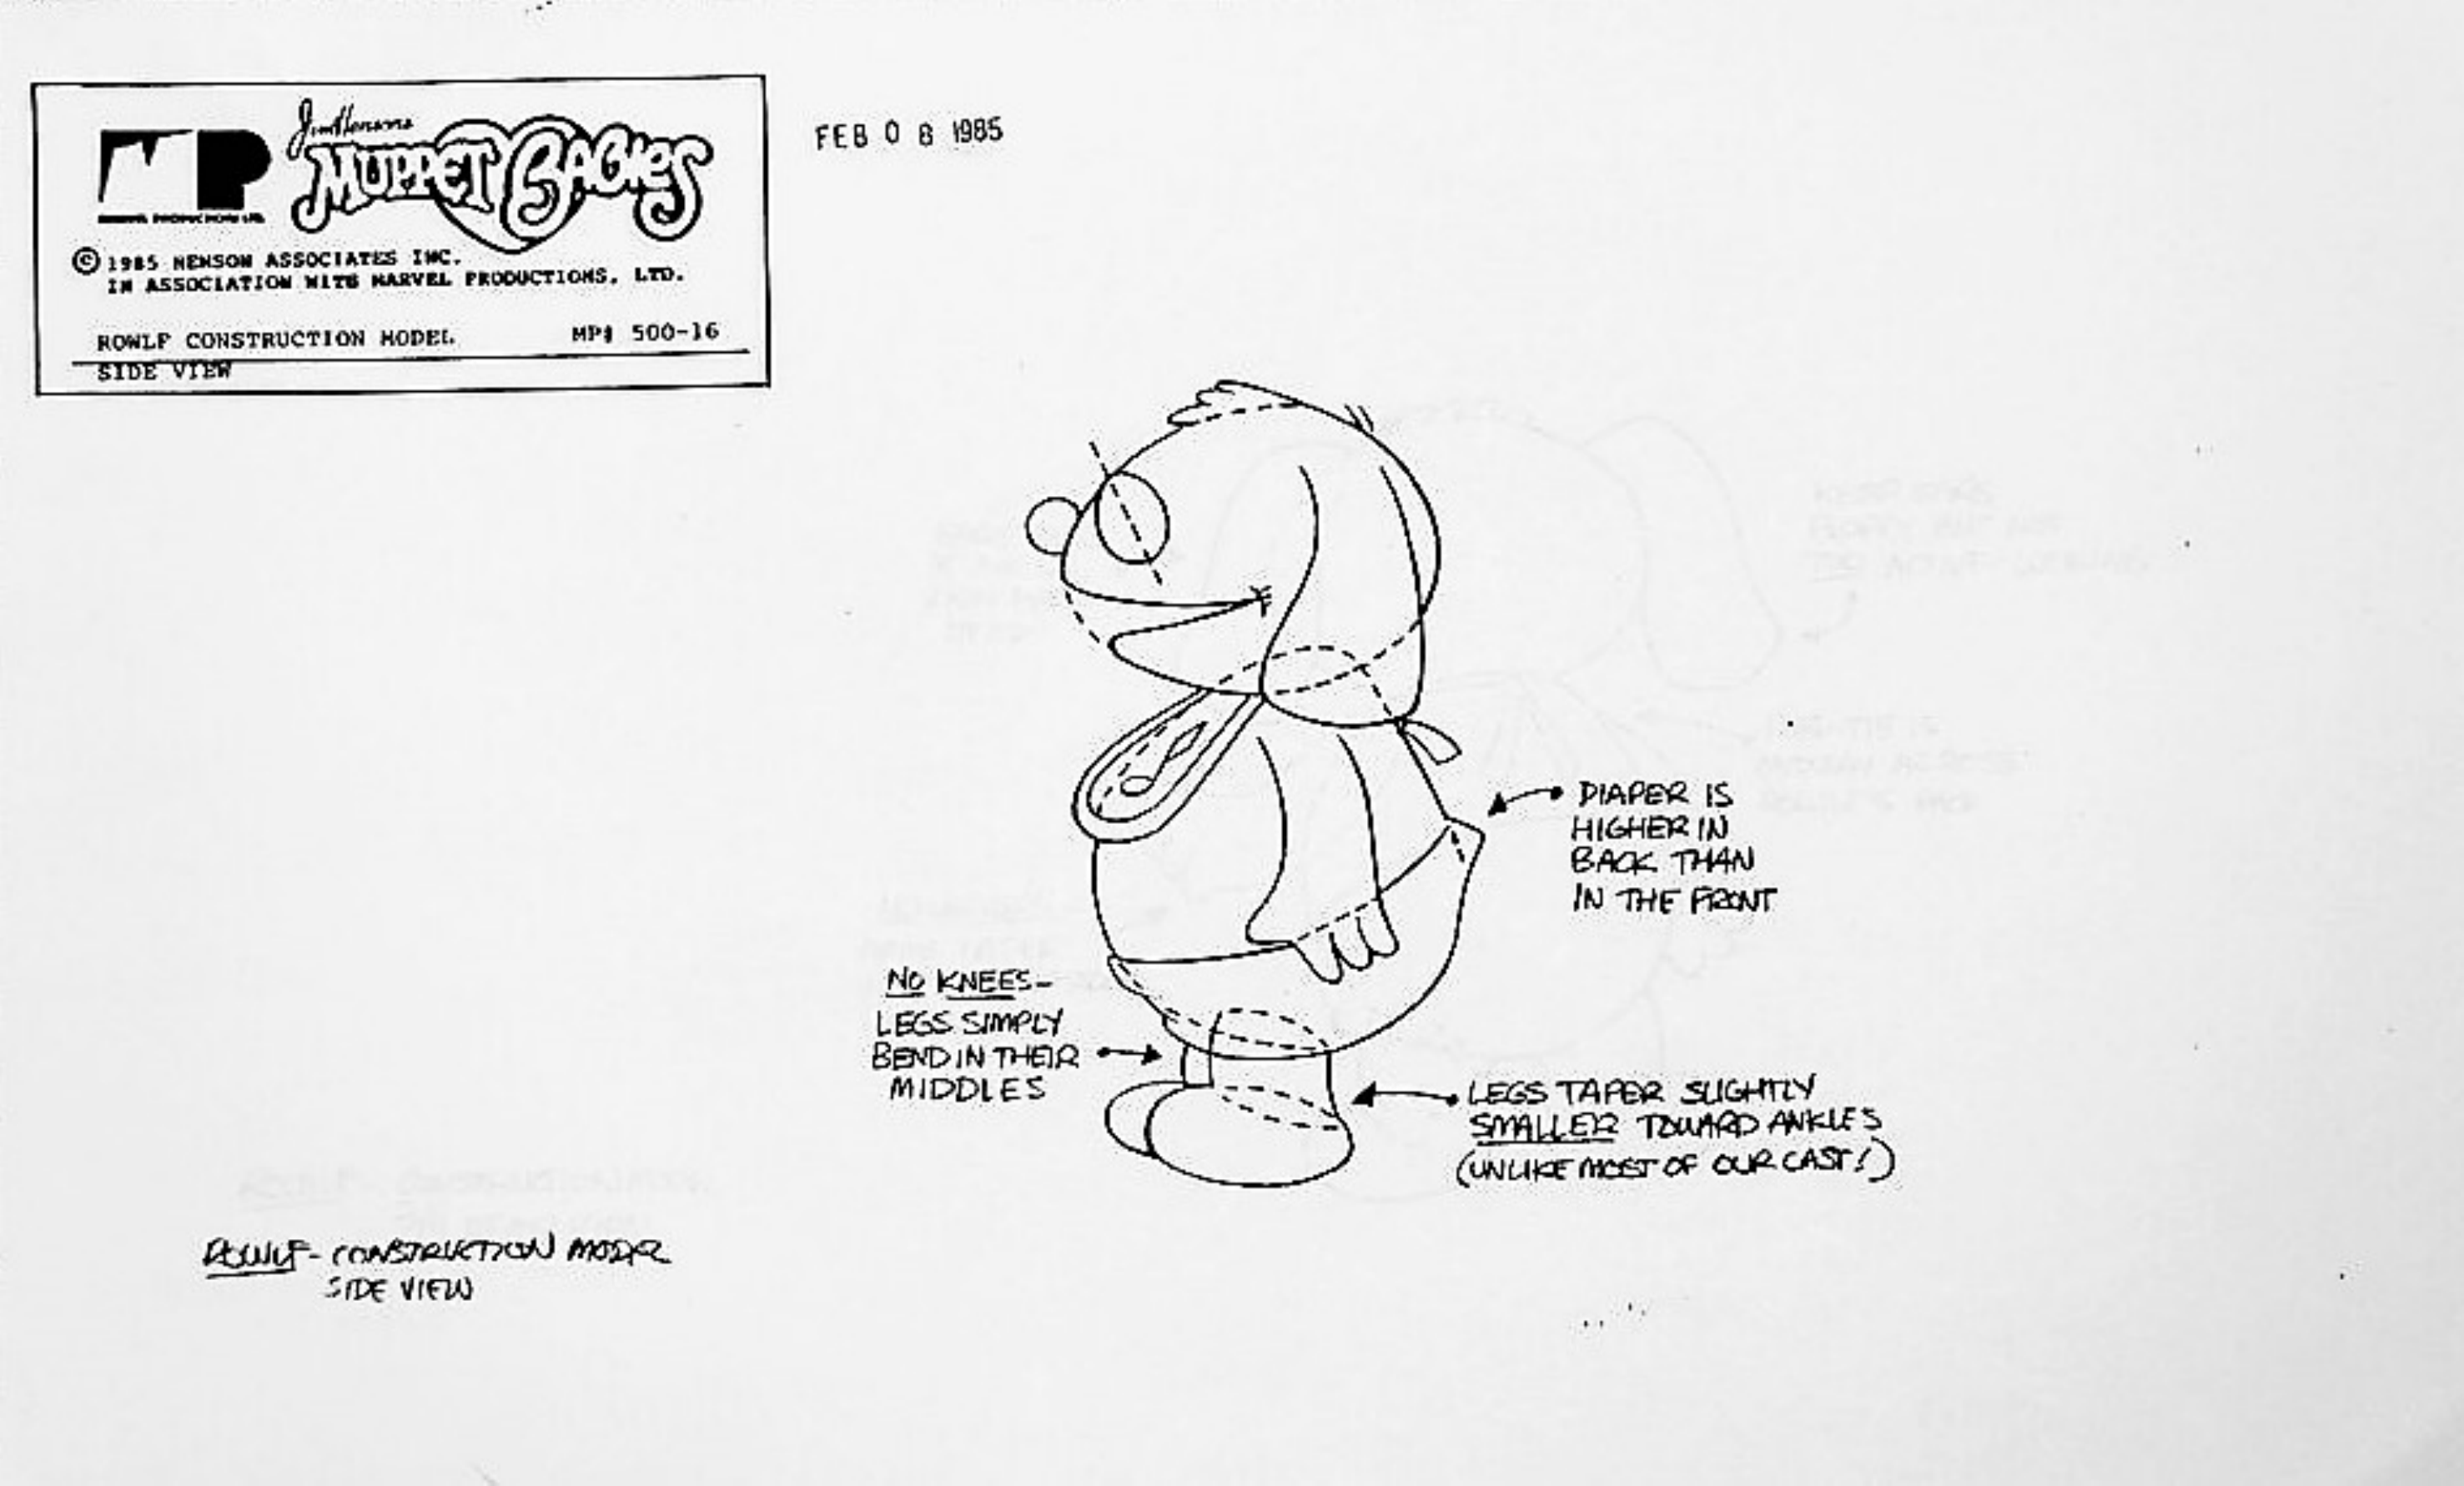 Jim Henson's
MUPPET BABIES
MP
MARVEL PRODUCTIONS LTD.
© 1985 HENSON ASSOCIATES INC.
IN ASSOCIATION WITH MARVEL PRODUCTIONS, LTD.
ROWLF CONSTRUCTION MODEL MP# 500-16
SIDE VIEW
FEB 08 1985
DIAPER IS
HIGHER IN
BACK THAN
IN THE FRONT
NO KNEES-
LEGS SIMPLY
BEND IN THEIR
MIDDLES
LEGS TAPER SLIGHTLY
SMALLER TOWARD ANKLES
(UNLIKE MOST OF OUR CAST!)
ROWLF - CONSTRUCTION MODEL
SIDE VIEW